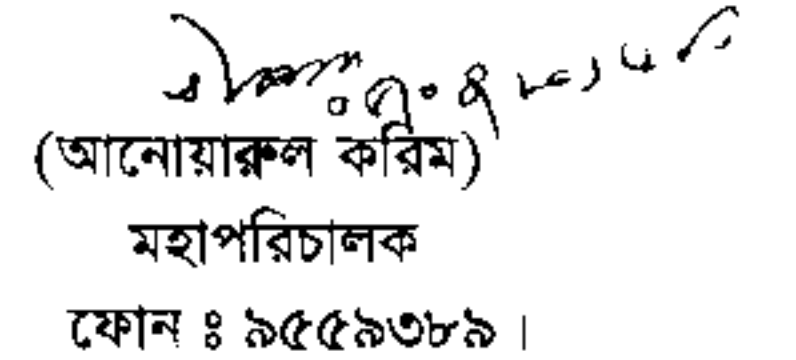 (আনোয়ারুল করিম)
মহাপরিচালক
ফোন ঃ ৯৫৫৯৩৮৯।